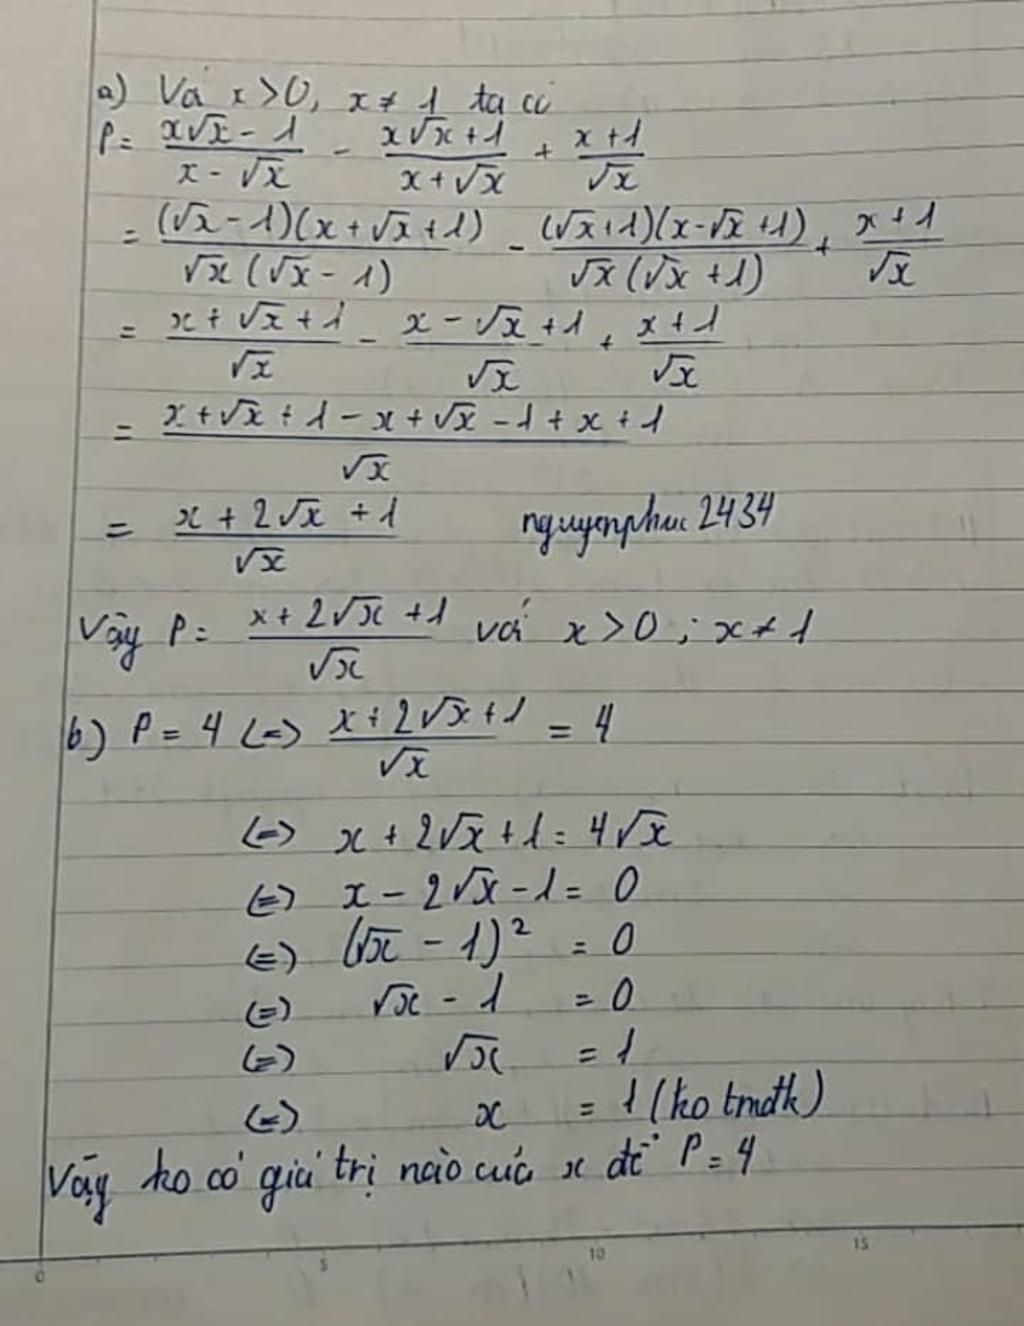 a) Với x > 0, x ≠ 1 ta có
P = (x√x - 1)/(x - √x) - (x√x + 1)/(x + √x) + (x + 1)/√x
= (√x - 1)(x + √x + 1)/(√x(√x - 1)) - (√x + 1)(x - √x + 1)/(√x(√x + 1)) + (x + 1)/√x
= (x + √x + 1)/√x - (x - √x + 1)/√x + (x + 1)/√x
= (x + √x + 1 - x + √x - 1 + x + 1)/√x
= (x + 2√x + 1)/√x nguyenphuc2434
Vậy P = (x + 2√x + 1)/√x với x > 0 ; x ≠ 1
b) P = 4 <=> (x + 2√x + 1)/√x = 4
<=> x + 2√x + 1 = 4√x
<=> x - 2√x - 1 = 0
<=> (√x - 1)² = 0
<=> √x - 1 = 0
<=> √x = 1
<=> x = 1 (ko tmđk)
Vậy ko có giá trị nào của x để P = 4
0 5 10 15